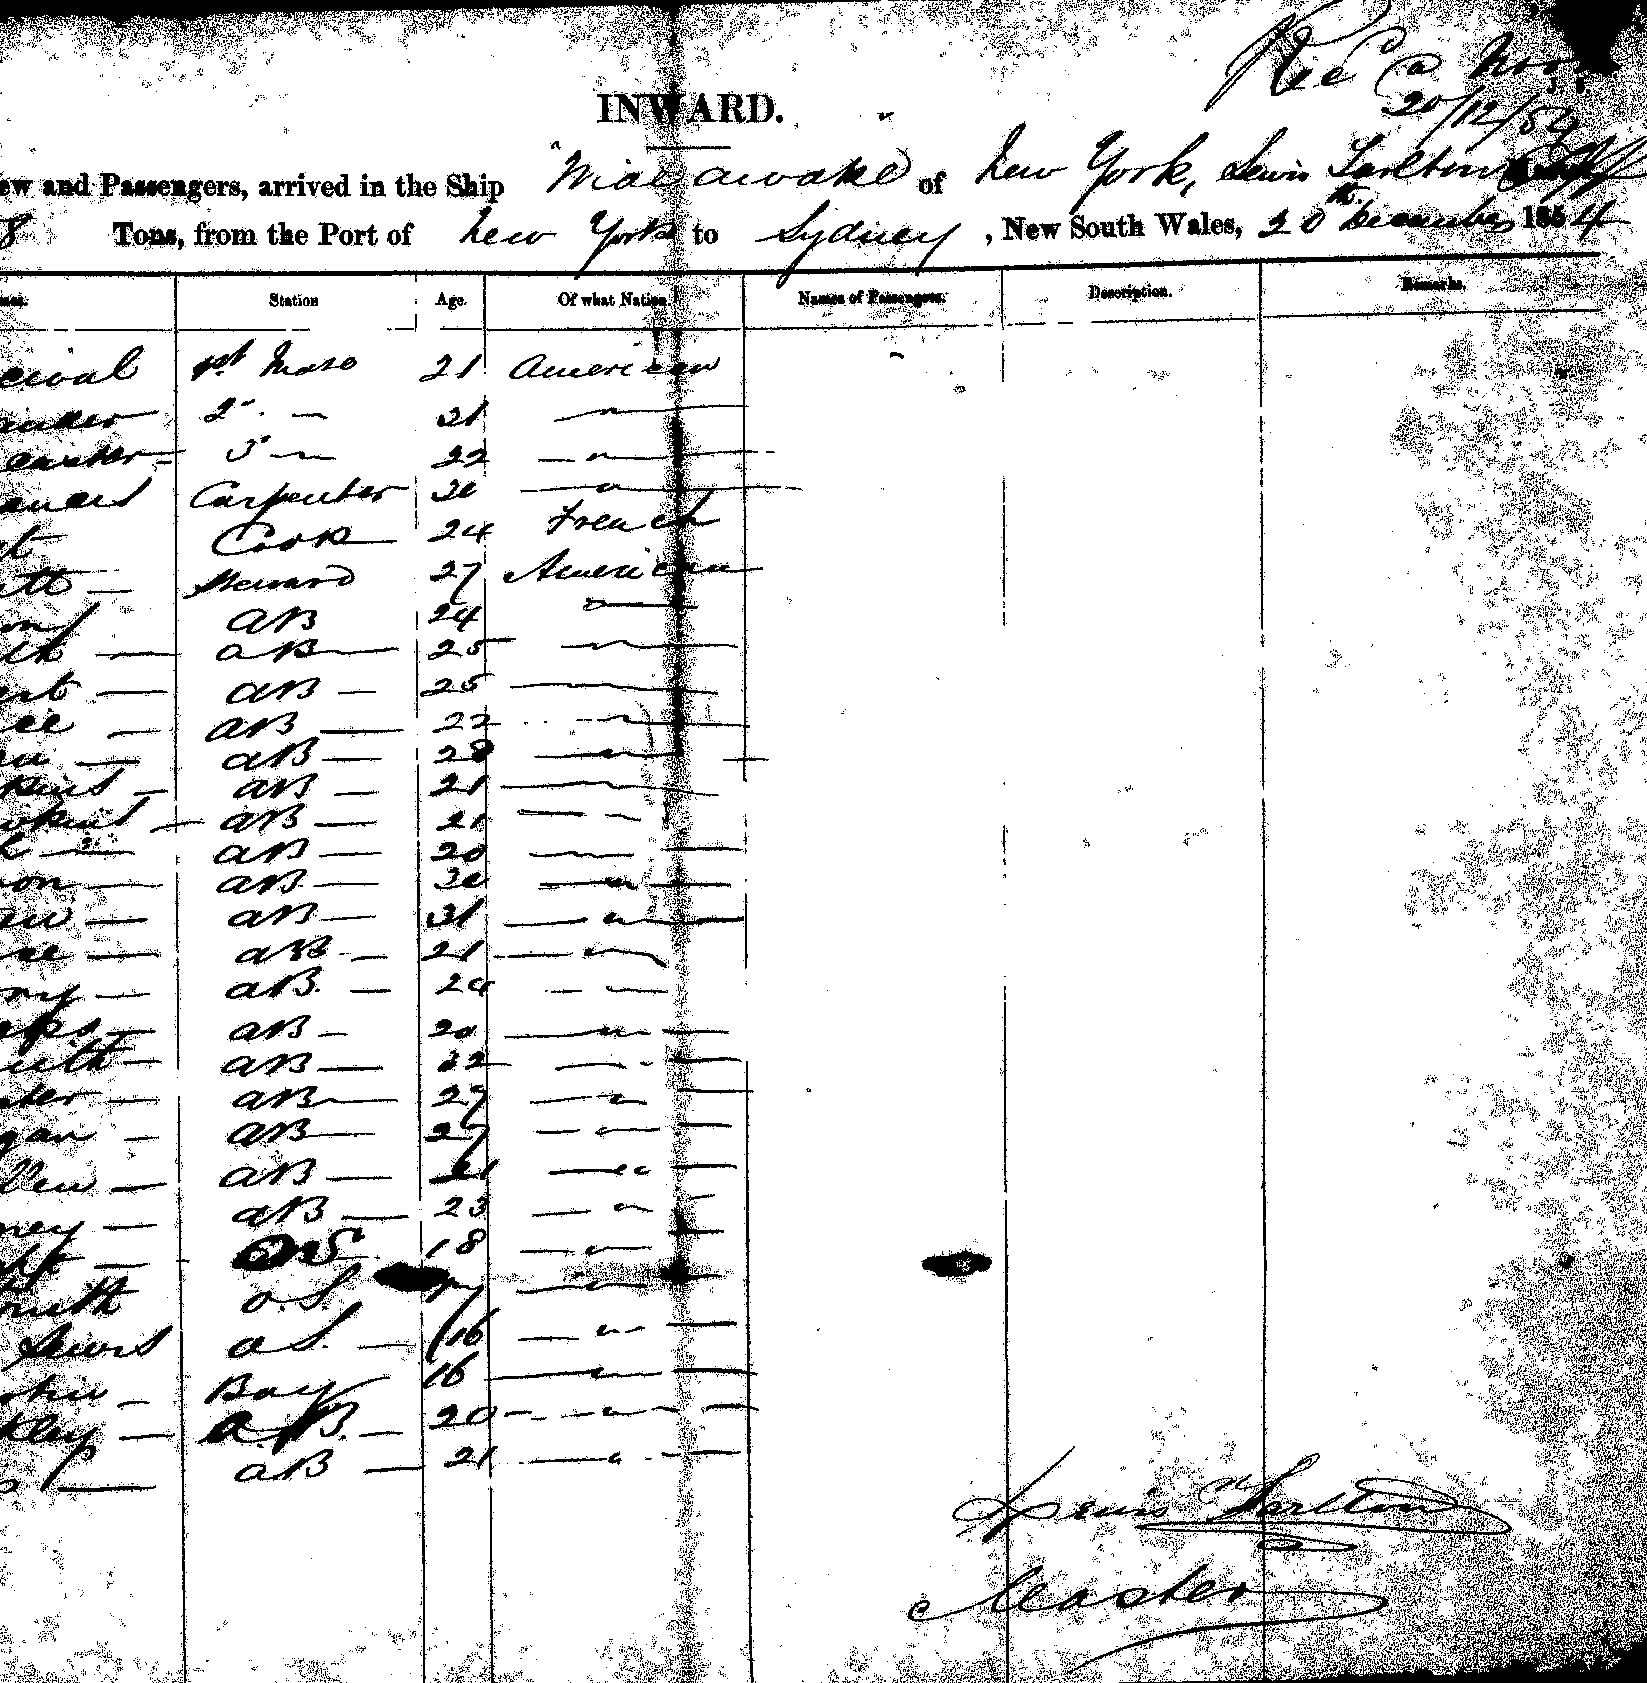 20/12/54
INWARD.
ew and Passengers, arrived in the Ship "Wide awake" of New York, Lewis Tarlton
8 Tons, from the Port of New York to Sydney, New South Wales, 20th December 1854
Station Age. Of what Nation. Names of Passengers. Description. Remarks.
cival 1st Mate 21 American
ander 2" — 21 — " —
Carter 3" — 22 — " —
Carpenter 30 — " —
Cook — 24 French
Steward 27 American
on AB 24 —
th — AB — 25 — " —
ert — AB — 25 — " —
ee — AB — 22 — " —
AB — 28 — " —
kins — AB — 21 — " —
wkins — AB — 21 — " —
AB — 20 — " —
on — AB — 30 — " —
AB — 31 — " —
AB — 21 — " —
ry — AB. — 24 — " —
AB — 20 — " —
AB — 22 — " —
ter — AB — 27 — " —
gan — AB — 27 — " —
den — AB — 21 — " —
ney — AB — 23 — " —
OS 18 — " —
mith O.S. 17 — " —
Lewis O S. — 16 — " —
Boy 16 — " —
kley — A.B. — 20 — " —
AB — 21 — " —
Lewis Tarlton
Master